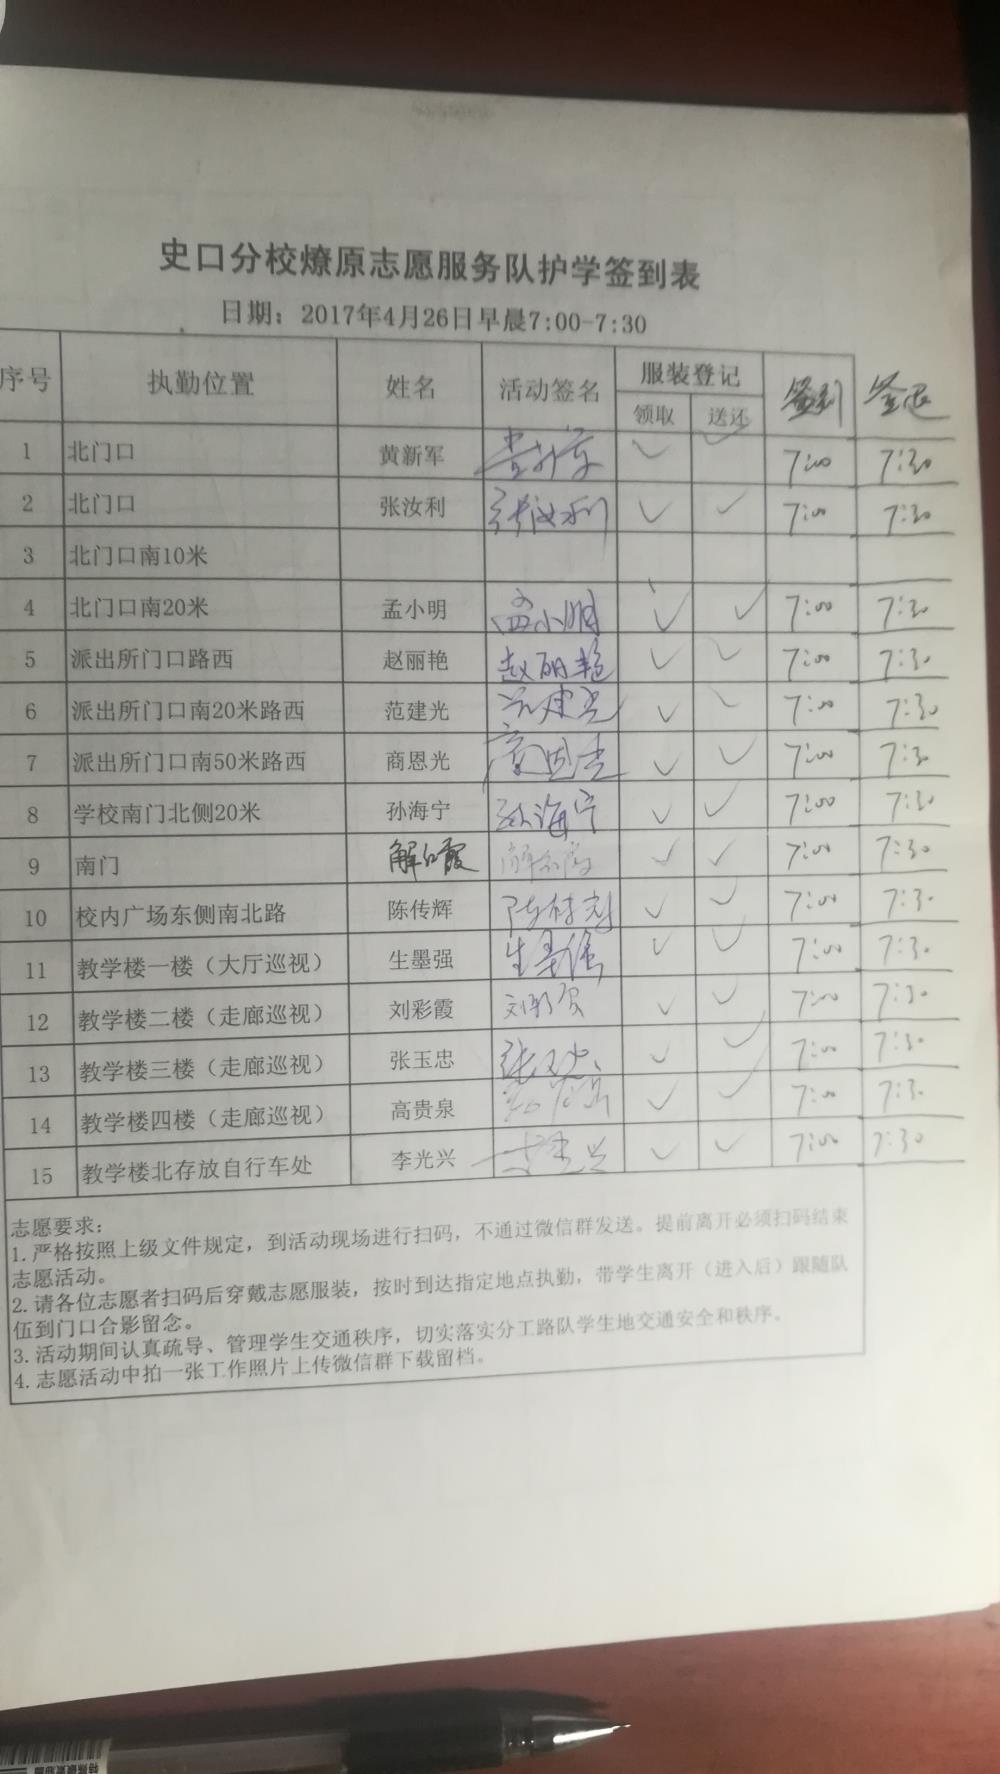 史口分校燎原志愿服务队护学签到表
日期：2017年4月26日早晨7:00-7:30
序号 执勤位置 姓名 活动签名 服装登记 签到 签退
领取 送还
1 北门口 黄新军 黄新军 ✓ ✓ 7:00 7:30
2 北门口 张汝利 张汝利 ✓ ✓ 7:00 7:30
3 北门口南10米
4 北门口南20米 孟小明 孟小明 ✓ ✓ 7:00 7:30
5 派出所门口路西 赵丽艳 赵丽艳 ✓ ✓ 7:00 7:30
6 派出所门口南20米路西 范建光 范建光 ✓ ✓ 7:00 7:30
7 派出所门口南50米路西 商恩光 商恩光 ✓ ✓ 7:00 7:30
8 学校南门北侧20米 孙海宁 孙海宁 ✓ ✓ 7:00 7:30
9 南门 ✓ ✓ 7:00 7:30
10 校内广场东侧南北路 陈传辉 ✓ ✓ 7:00 7:30
11 教学楼一楼（大厅巡视） 生墨强 生墨强 ✓ ✓ 7:00 7:30
12 教学楼二楼（走廊巡视） 刘彩霞 刘彩霞 ✓ ✓ 7:00 7:30
13 教学楼三楼（走廊巡视） 张玉忠 张玉忠 ✓ ✓ 7:00 7:30
14 教学楼四楼（走廊巡视） 高贵泉 ✓ ✓ 7:00 7:30
15 教学楼北存放自行车处 李光兴 李光兴 ✓ ✓ 7:00 7:30
志愿要求：
1.严格按照上级文件规定，到活动现场进行扫码，不通过微信群发送。提前离开必须扫码结束
志愿活动。
2.请各位志愿者扫码后穿戴志愿服装，按时到达指定地点执勤，带学生离开（进入后）跟随队
伍到门口合影留念。
3.活动期间认真疏导、管理学生交通秩序，切实落实分工路队学生地交通安全和秩序。
4.志愿活动中拍一张工作照片上传微信群下载留档。